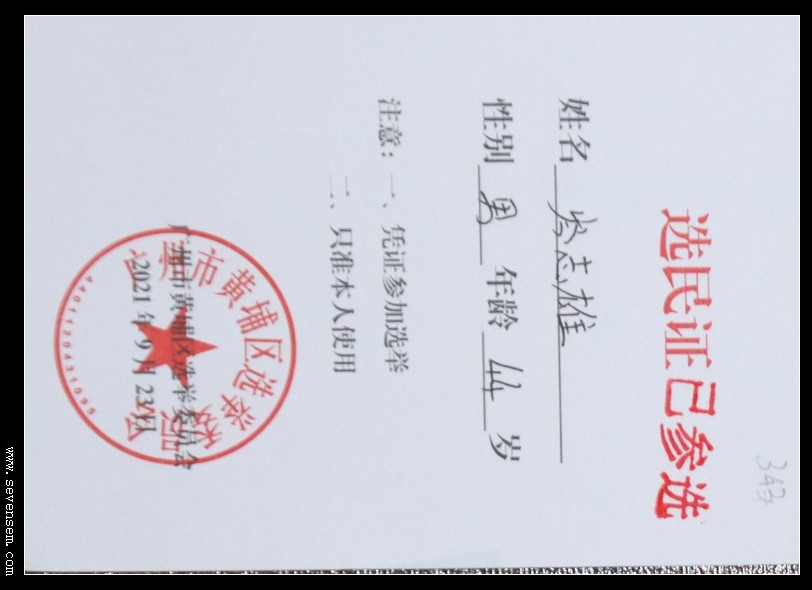 343
选民证已参选
姓名 岑志雄
性别 男 年龄 44 岁
注意：一、凭证参加选举
二、只准本人使用
广州市黄埔区选举委员会
2021年9月23日
广州市黄埔区选举委员会
www.sevensem.com